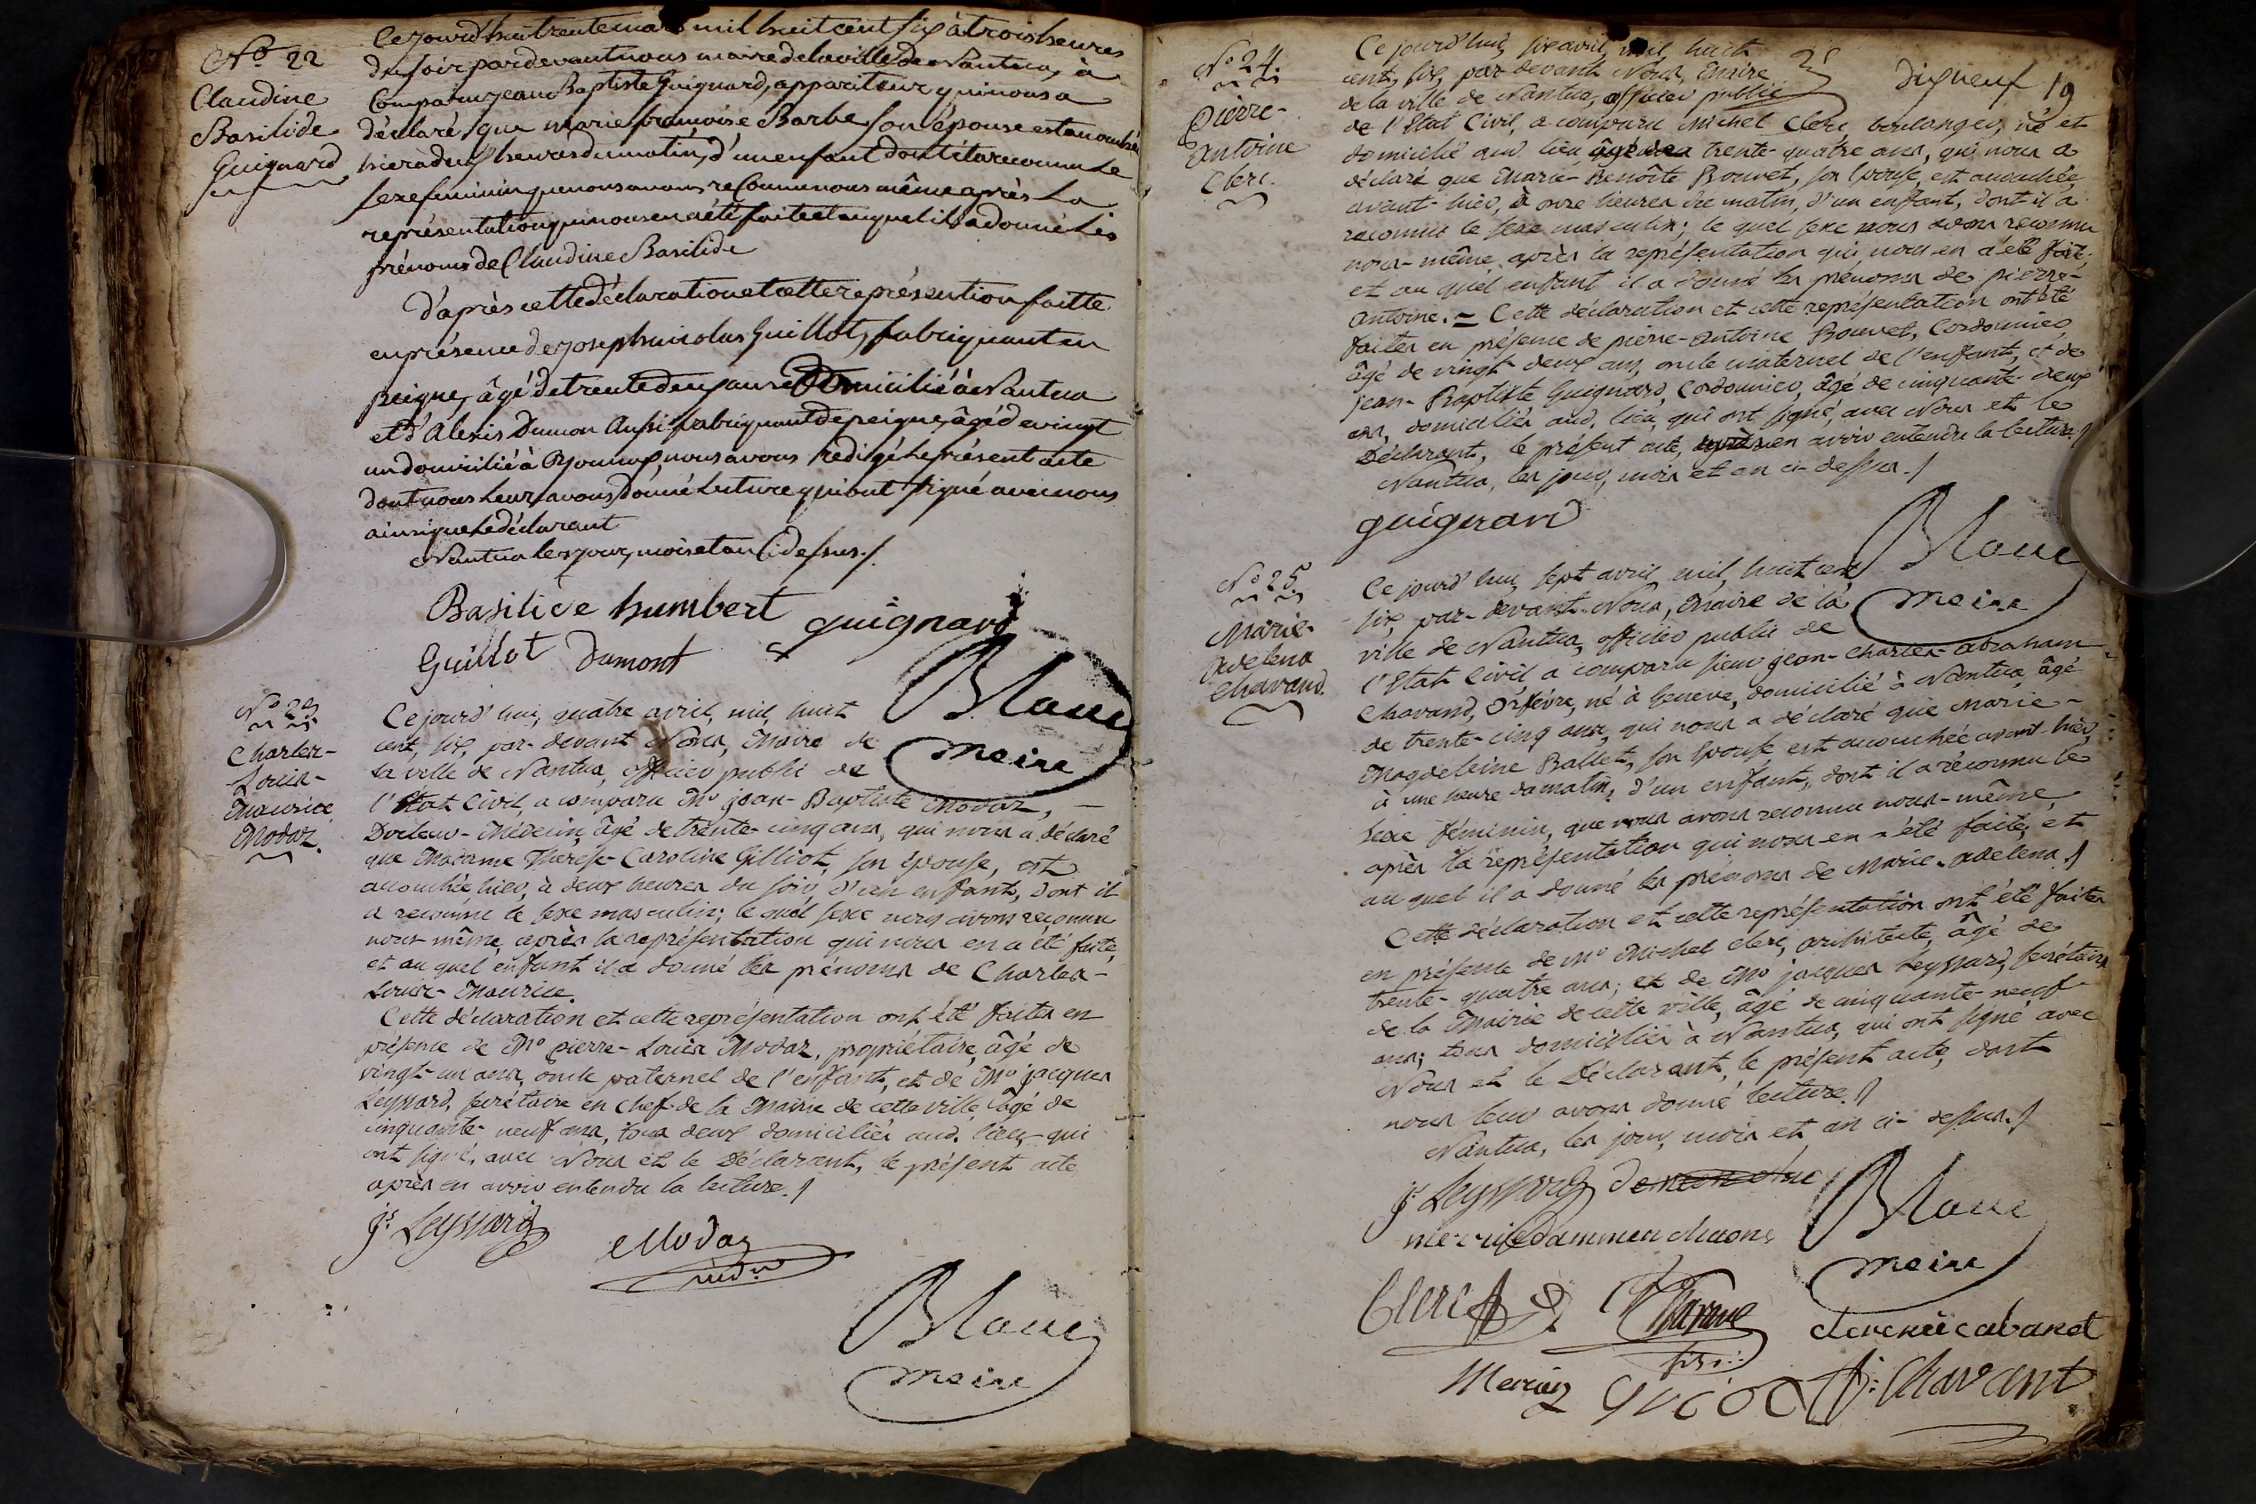 No 22
Claudine
Basilide
Guignard
Ce jourd'hui trente mars mil huit cent six à trois heures
du soir pardevant nous maire de la ville de Nantua, à
Comparu jean Baptiste Guignard, appariteur qui nous a
déclaré que marie francoise Barbe son épouse est accouchée
hier à du matin, d'un enfant dont il a reconnu le
sexe feminin que nous avons reconnu nous même après La
représentation qui nous en a été faite et auquel il a donné Les
prénoms de Claudine Basilide
D'après cette déclaration et cette représentation faitte
en présence de joseph nicolas Guillot, fabriquant en
peigne, âgé de trente deux ans Domicilié à Nantua
et d'Alexis Dumon Aussi fabriquant de peigne, âgé de vingt
un domicilié à Oyonnax, nous avons Redigé Le présent acte
dont nous Leur avons donné Lecture qui ont signé avec nous
ainsi que Le déclarant
Nantua les jour, mois et an Ci dessus./.
Basilide humbert guignard
Guillot Dumont
Blanc
maire
No 23
Charles-
Louis-
Maurice
Modaz.
Ce jourd'hui, quatre avril, mil huit
cent, six, par-devant Nous, Maire de
la ville de Nantua, officier public de
l'Etat Civil, a comparu Mr jean-Baptiste Modaz,
Docteur-Médecin, âgé de trente-cinq ans, qui nous a déclaré
que Madame Thérèse-Caroline Gilliot, son épouse, est
accouchée hier, à deux heures du soir, d'un enfant, dont il
a reconnu le sexe masculin; le quel sexe nous avons reconnu
nous-même, après la représentation qui nous en a été faite,
et au quel enfant il a donné les prénoms de Charles-
Louis-Maurice.
Cette déclaration et cette représentation ont été faites en
présence de Mr pierre-Louis Modaz, propriétaire, âgé de
vingt-un ans, oncle paternel de l'enfant, et de Mr jacques
Leyssard, secrétaire en chef de la Mairie de cette ville, âgé de
cinquante-neuf ans, tous deux domiciliés aud. lieu, qui
ont signé, avec Nous et le Déclarant, le présent acte
après en avoir entendu la lecture./
Js Leyssard
Modaz
Blanc
maire
Dixneuf 19
No 24.
Pierre-
Antoine
Clerc.
Ce jourd'hui, six avril, mil huit
cent, six, par-devant Nous, Maire
de la ville de Nantua, officier public
de l'Etat Civil, a comparu Michel Clerc, boulanger, né et
domicilié aud. lieu, âgé de trente-quatre ans, qui nous a
déclaré que Marie-Benoîte Bouvet, son épouse, est accouchée,
avant-hier, à onze heures du matin, d'un enfant, dont il a
reconnu le sexe masculin; le quel sexe nous avons reconnu
nous-même, après la représentation qui nous en a été faite,
et au quel enfant il a donné les prénoms de pierre-
Antoine.= Cette déclaration et cette représentation ont été
faites en présence de pierre-Antoine Bouvet, Cordonnier,
âgé de vingt deux ans, oncle maternel de l'enfant, et de
jean-Baptiste Guignard, Cordonnier, âgé de cinquante-deux
ans, domiciliés aud. lieu, qui ont signé, avec Nous et le
Déclarant, le présent acte, après en avoir entendu la lecture./
Nantua, les jour, mois et an ci-dessus./
guignard
Blanc
maire
No 25.
Marie-
Adelena
Chavand.
Ce jourd'hui, sept avril, mil, huit cent
six, par-devant Nous, Maire de la
ville de Nantua, officier public de
l'Etat Civil a comparu sieur jean-Charles-abraham
Chavand, Orfèvre, né à Geneve, domicilié à Nantua, âgé
de trente-cinq ans, qui nous a déclaré que Marie-
Magdeleine Ballet, son épouse, est accouchée avant-hier,
à une heure du matin, d'un enfant, dont il a reconnu le
sexe féminin, que nous avons reconnu nous-même,
après la représentation qui nous en a été faite, et
au quel il a donné les prénoms de Marie-Adelena./
Cette déclaration et cette représentation ont été faites
en présence de Mr Michel Clerc, architecte, âgé de
trente-quatre ans; et de Mr jacques Leyssard, secrétaire
de la Mairie de cette ville, âgé de cinquante-neuf
ans; tous domiciliés à Nantua, qui ont signé avec
Nous et le Déclarant, le présent acte, dont
nous leur avons donné lecture./
Nantua, les jour, mois et an ci-dessus./
Js Leyssard
Blanc
maire
Clerc
cabanet
Chavant